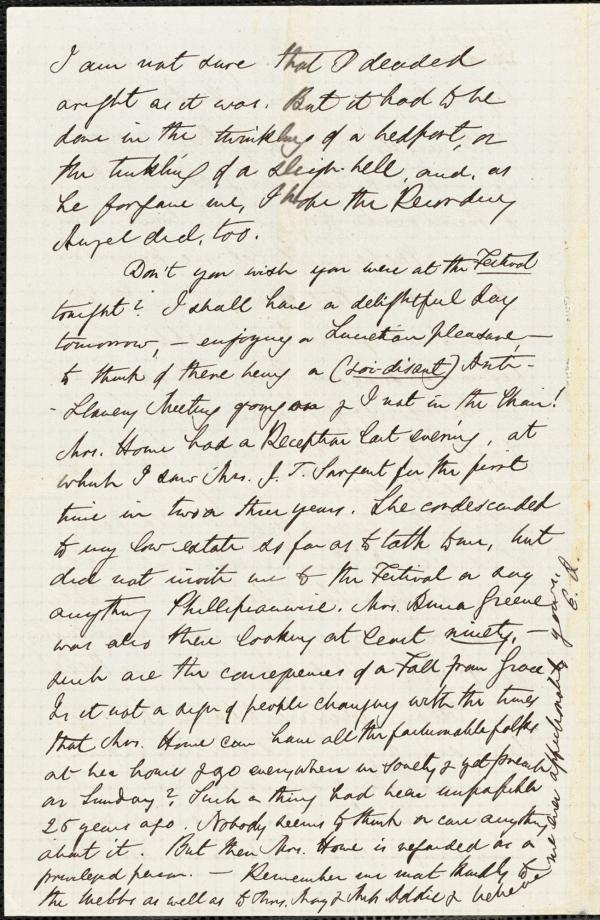 I am not sure that I decided
aright as it was. But it had to be
done in the twinkling of a bedpost, or
the tinkling of a sleigh-bell, and, as
he forgave me, I hope the Recording
Angel did, too.
Don't you wish you were at the Festival
tonight? I shall have a delightful day
tomorrow, — enjoying a Lucretian pleasure, —
to think of there being a (soi-disant) Anti-
-Slavery Meeting going on & I not in the Chair!
Mrs. Howe had a Reception last evening, at
which I saw Mrs. J. T. Sargent for the first
time in two or three years. She condescended
to my low estate so far as to talk to me, but
did not invite me to the Festival or say
anything Phillipeanwise. Mrs. Anna Greene
was also there looking at least ninety, —
such are the consequences of a Fall from Grace.
Is it not a sign of people changing with the times
that Mrs. Howe can have all the fashionable folks
at her house & go everywhere in Society & yet preach
on Sunday? Such a thing had been impossible
25 years ago. Nobody seems to think or care anything
about it. But then Mrs. Howe is regarded as a
privileged person. — Remember me most kindly to
the Webbs as well as to Mrs. May & Miss Addie & believe
me ever affectionately yours,
E. Q.